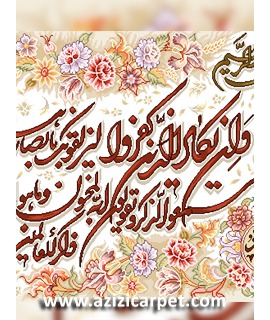 الرحیم
وان یکاد الذین کفروا لیزلقونک بابصار
سمعوا الذکر و یقولون انه لمجنون و ما هو
ذکر للعالمین
www.azizicarpet.com